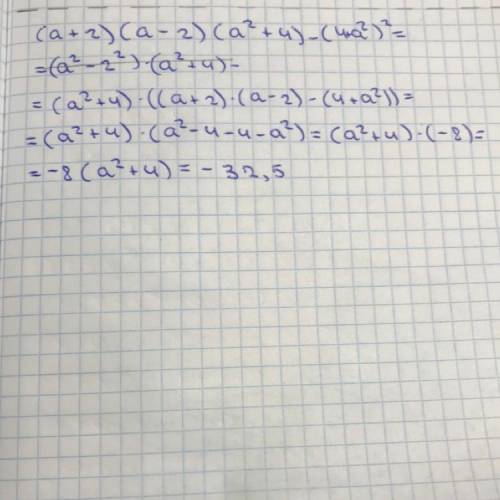 (a+2)(a-2)(a²+4)-(4+a²)²=
=(a²-2²)·(a²+4)-
=(a²+4)·((a+2)·(a-2)-(4+a²))=
=(a²+4)·(a²-4-4-a²)=(a²+4)·(-8)=
=-8(a²+4)=-32,5